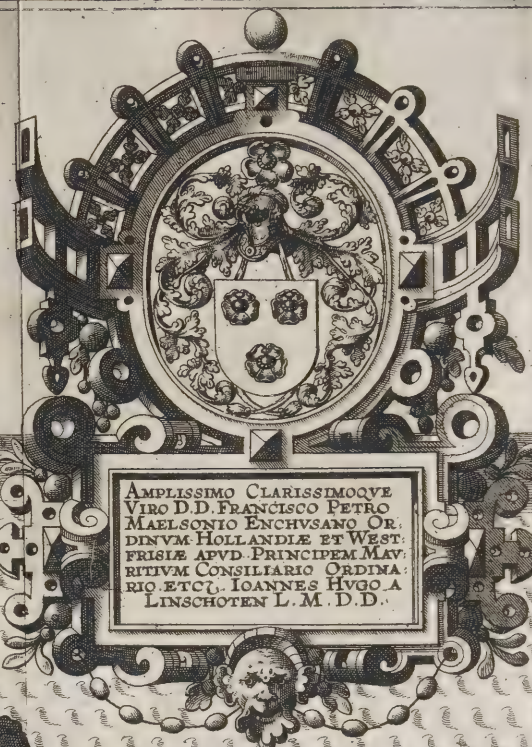 AMPLISSIMO CLARISSIMOQVE
VIRO D.D. FRANCISCO PETRO
MAELSONIO ENCHVSANO OR:
DINVM HOLLANDIÆ ET WEST
FRISIÆ APVD PRINCIPEM MAV:
RITIVM CONSILIARIO ORDINA:
RIO. ETCZ. IOANNES HVGO A
LINSCHOTEN L. M. D. D.